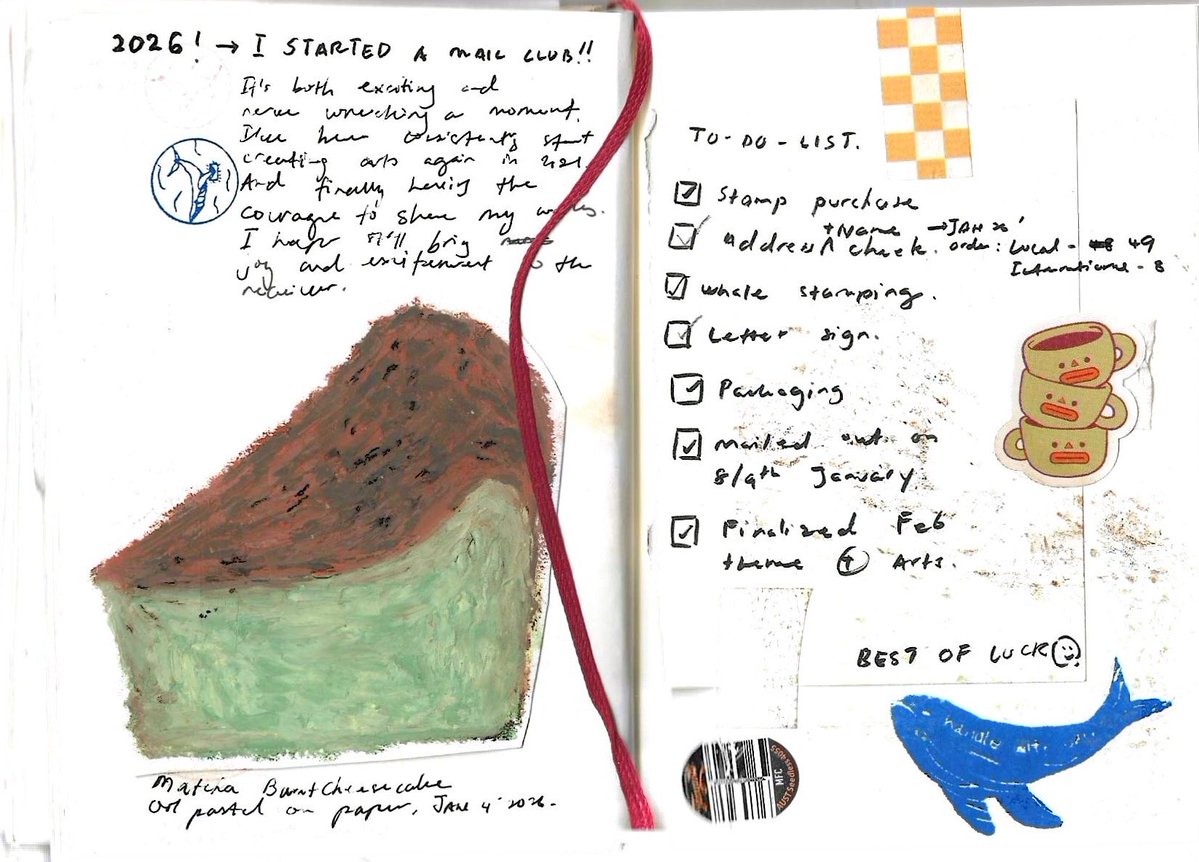 2026! → I STARTED A MAIL CLUB!!
It's both exciting and
nerve wrecking a moment.
I have been consistently start
creating arts again in
And finally having the
courage to share my works.
I hope it'll brig
joy and excitement to the
receiver.
Matcha Burnt Cheesecake
Oil pastel on paper, JAN 4' 2026.
TO-DO-LIST.
Stamp purchase
Address + Name check. → JAN 26' order: Local - 49
International - 8
Whale stamping.
Letter sign.
Packaging
Mailed out on
8/9th January.
Finalized Feb
theme + Arts.
BEST OF LUCK
handle with
MFC
AUST Seedless 4055